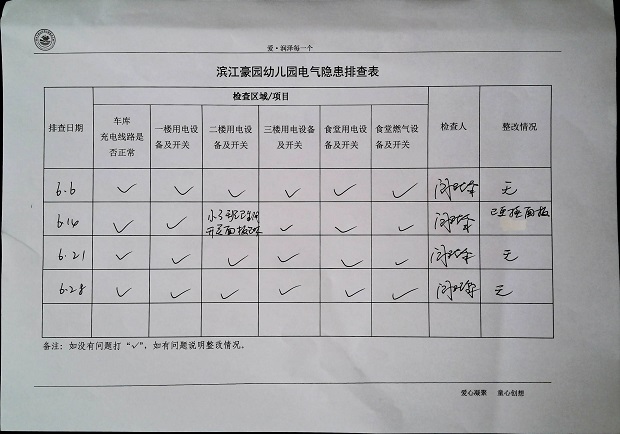 爱·润泽每一个
滨江豪园幼儿园电气隐患排查表
排查日期 检查区域/项目 检查人 整改情况
车库充电线路是否正常 一楼用电设备及开关 二楼用电设备及开关 三楼用电设备及开关 食堂用电设备及开关 食堂燃气设备及开关
6.6 ✓ ✓ ✓ ✓ ✓ ✓ 无
6.14 ✓ ✓ 开关面板 ✓ ✓ ✓ 面板
6.21 ✓ ✓ ✓ ✓ ✓ ✓ 无
6.28 ✓ ✓ ✓ ✓ ✓ ✓ 无
备注：如没有问题打“✓”，如有问题说明整改情况。
爱心凝聚 童心创想